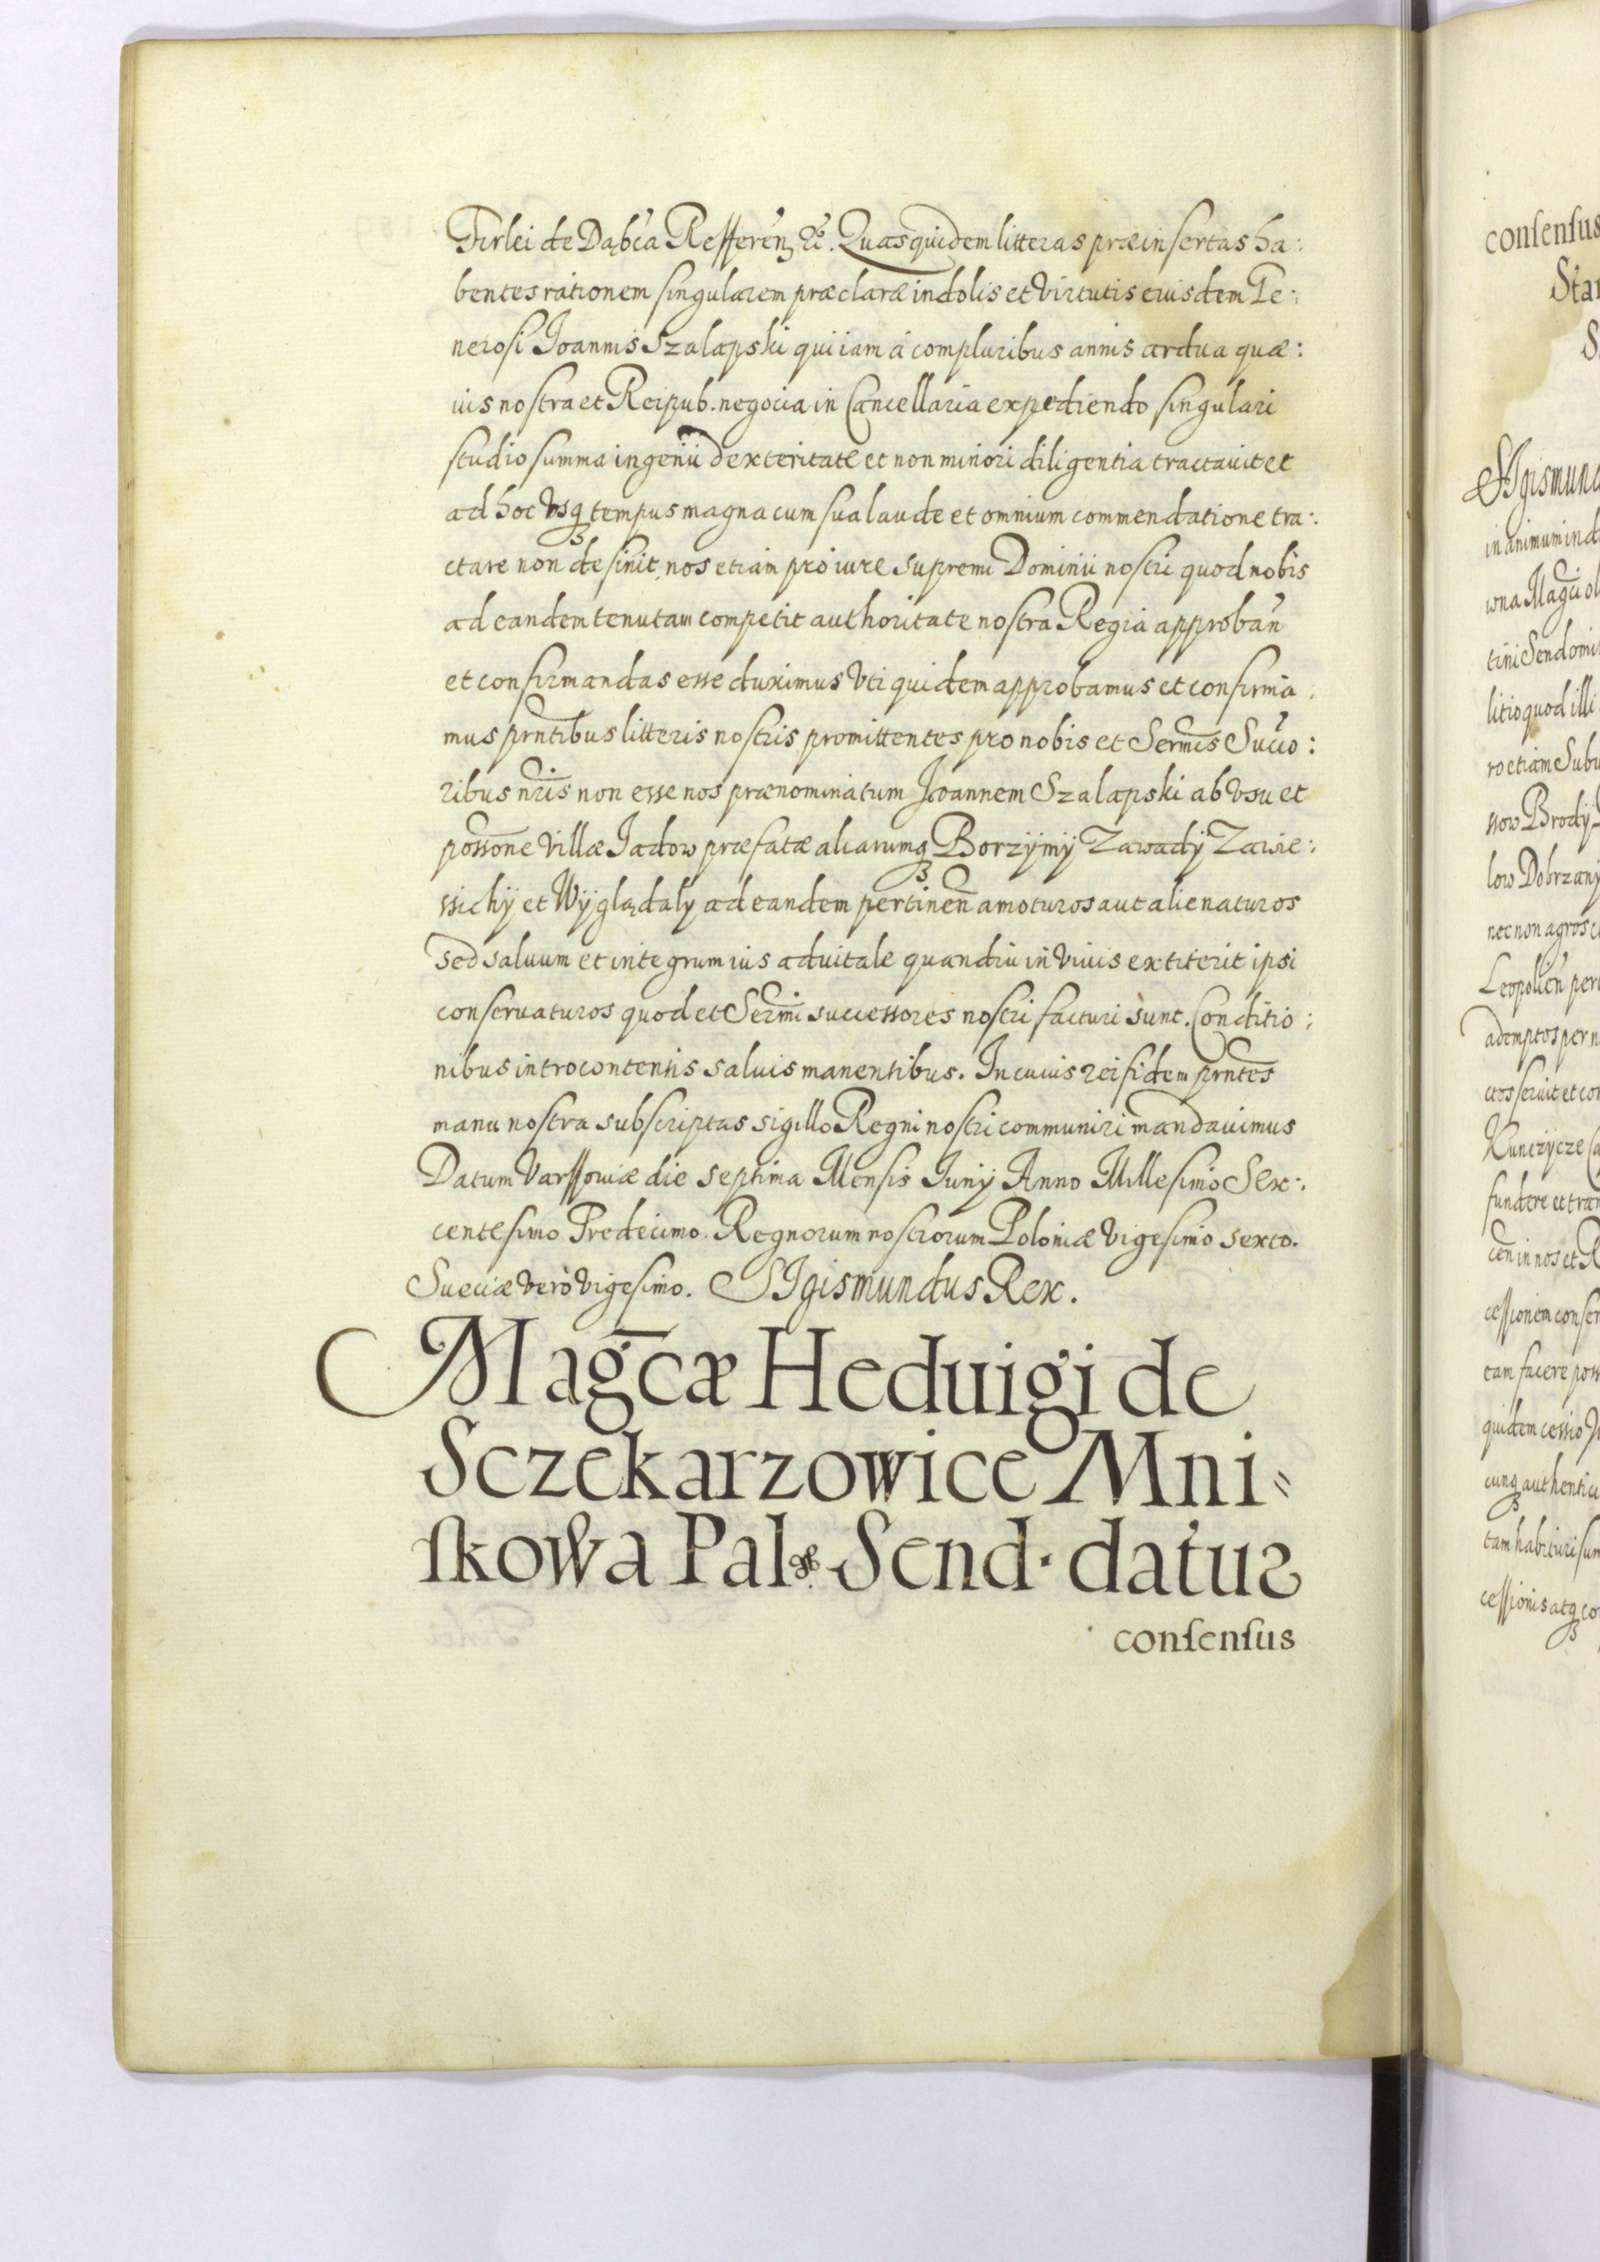 Firlei de Dąbca Refferen̄ &c. Quas quidem litteras præinsertas ha:
bentes rationem singularem præclaræ indolis et virtutis eiusdem Ge:
nerosi Joannis Szalapski qui iam á compluribus annis ardua quæ:
uis nostra et Reipub. negocia in Cancellaria expediendo singulari
studio summa ingenii dexteritate et non minori diligentia tractauit et
ad hoc vsq tempus magna cum sua laude et omnium commendatione tra:
ctare non desinit, nos etiam pro iure supremi Dominii nostri quod nobis
ad eandem tenutam competit authoritate nostra Regia approban̄
et confirmandas esse duximus vti quidem approbamus et confirma:
mus prn̄tibus litteris nostris promittentes pro nobis et Serm̄is Succ̄o:
ribus nr̄is non esse nos prænominatum Joannem Szalapski ab vsu et
possōne villæ Jadow præfatæ aliarumq Borzymÿ Zawadÿ Zawie:
ssichÿ et Wÿglądaly ad eandem pertinen̄ amoturos aut alienaturos
sed saluum et integrum ius aduitale quandiu in viuis extiterit ipsi
conseruaturos quod et Serm̄i successores nostri facturi sunt. Conditio:
nibus introcontentis saluis manentibus. In cuius rei fidem prn̄tes
manu nostra subscriptas sigillo Regni nostri communiri mandauimus
Datum Varssouiæ die septima Mensis Junÿ Anno Millesimo Sex:
centesimo Tredecimo. Regnorum nostrorum Poloniæ vigesimo sexto.
Sueciæ verò vigesimo. SIgismundus Rex.
Maḡcæ Heduigi de
Sczekarzowice Mni=
skowa Pal. Send. datus
consensus
consensus
Star
S
SIgismund
in animum ind
wna Maḡci ol
tini Sendomi
litio quod illi
ro etiam Subu
ssow Brodÿ
low Dobrzanÿ
nec non agros
Leopolien̄ per
ademptos per n
ctos seruit et con
Kunczÿcze Ca
fundere et tran
cen̄ in nos et R
cessionem conser
eam facere poss
quidem cessio J
cunq authentic
tam habituri sum
cessionis atq co